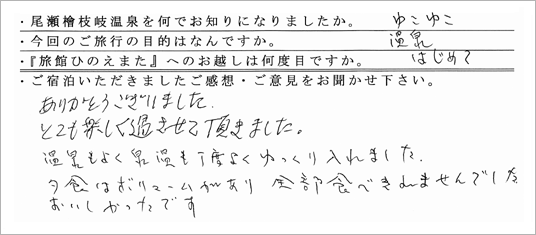 ・尾瀬檜枝岐温泉を何でお知りになりましたか。 ゆこゆこ
・今回のご旅行の目的はなんですか。 温泉
・『旅館ひのえまた』へのお越しは何度目ですか。 はじめて
・ご宿泊いただきましたご感想・ご意見をお聞かせ下さい。
ありがとうございました.
とても楽しく過させて頂きました。
温泉もよく泉温も丁度よくゆっくり入れました.
夕食はボリュームがあり 全部食べきれませんでした
おいしかったです